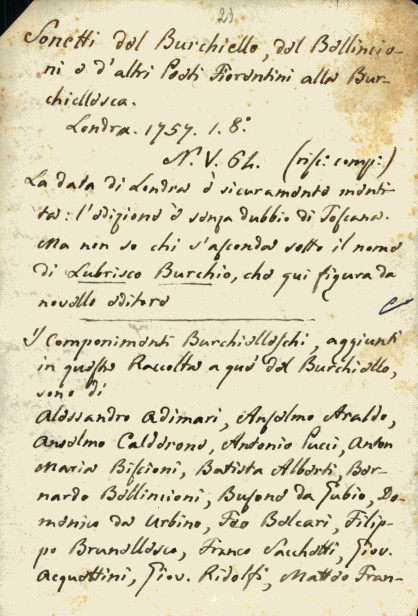 21
Sonetti del Burchiello, del Bellincio-
ni e d'altri Poeti Fiorentini alla Bur-
chiellesca.
Londra. 1757. 1. 8.°
N. V. 64. (rif: comp:)
La data di Londra è sicuramente menti-
ta: l'edizione è senza dubbio di Toscana.
Ma non so chi s'asconda sotto il nome
di Lubrisco Burchio, che qui figura da
novello editore
I Componimenti Burchielleschi, aggiunti
in questa Raccolta a que' del Burchiello,
sono di
Alessandro Adimari, Anselmo Araldo,
Anselmo Calderone, Antonio Pucci, Anton
Maria Biscioni, Batista Alberti, Ber-
nardo Bellincioni, Busone da Gubio, Do-
menico da Urbino, Feo Belcari, Filip-
po Brunellesco, Franco Sacchetti, Giov.
Acquettini, Giov. Ridolfi, Matteo Fran-